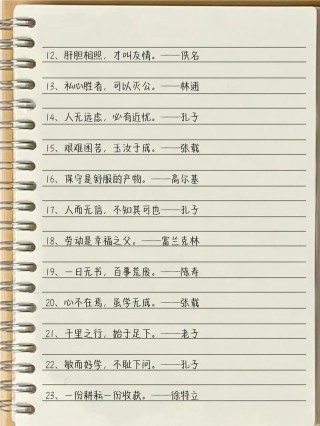 12、肝胆相照，才叫友情。——佚名
13、私心胜者，可以灭公。——林逋
14、人无远虑，必有近忧。——孔子
15、艰难困苦，玉汝于成。——张载
16、保守是舒服的产物。——高尔基
17、人而无信，不知其可也——孔子
18、劳动是幸福之父。——富兰克林
19、一日无书，百事荒废。——陈寿
20、心不在焉，虽学无成。——张载
21、千里之行，始于足下。——老子
22、敏而好学，不耻下问。——孔子
23、一份耕耘一份收获。——徐特立